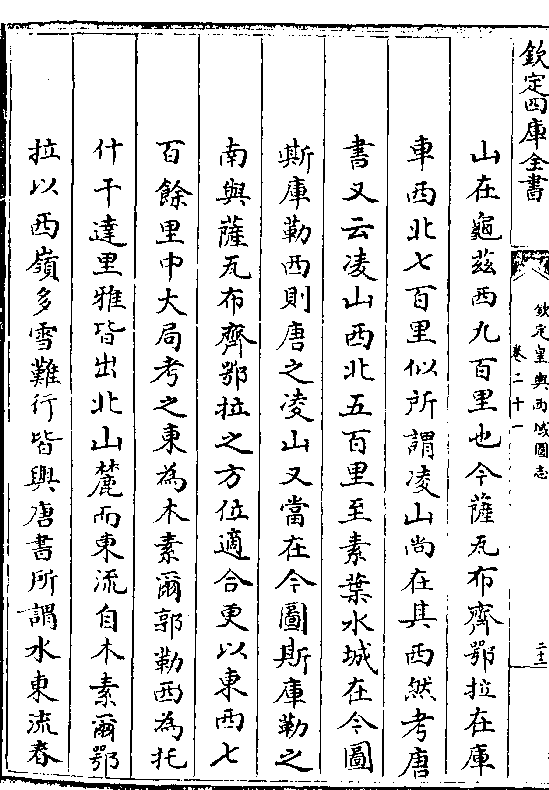 欽定四庫全書
欽定皇輿西域圖志
卷二十一
山在龜茲西九百里也今薩瓦布齊鄂拉在庫
車西北七百里似所謂凌山尚在其西然考唐
書又云凌山西北五百里至素葉水城在今圖
斯庫勒西則唐之凌山又當在今圖斯庫勒之
南與薩瓦布齊鄂拉之方位適合更以東西七
百餘里中大局考之東為木素爾郭勒西為托
什干達里雅皆出北山麓而東流自木素爾鄂
拉以西嶺多雪難行皆與唐書所謂水東流春